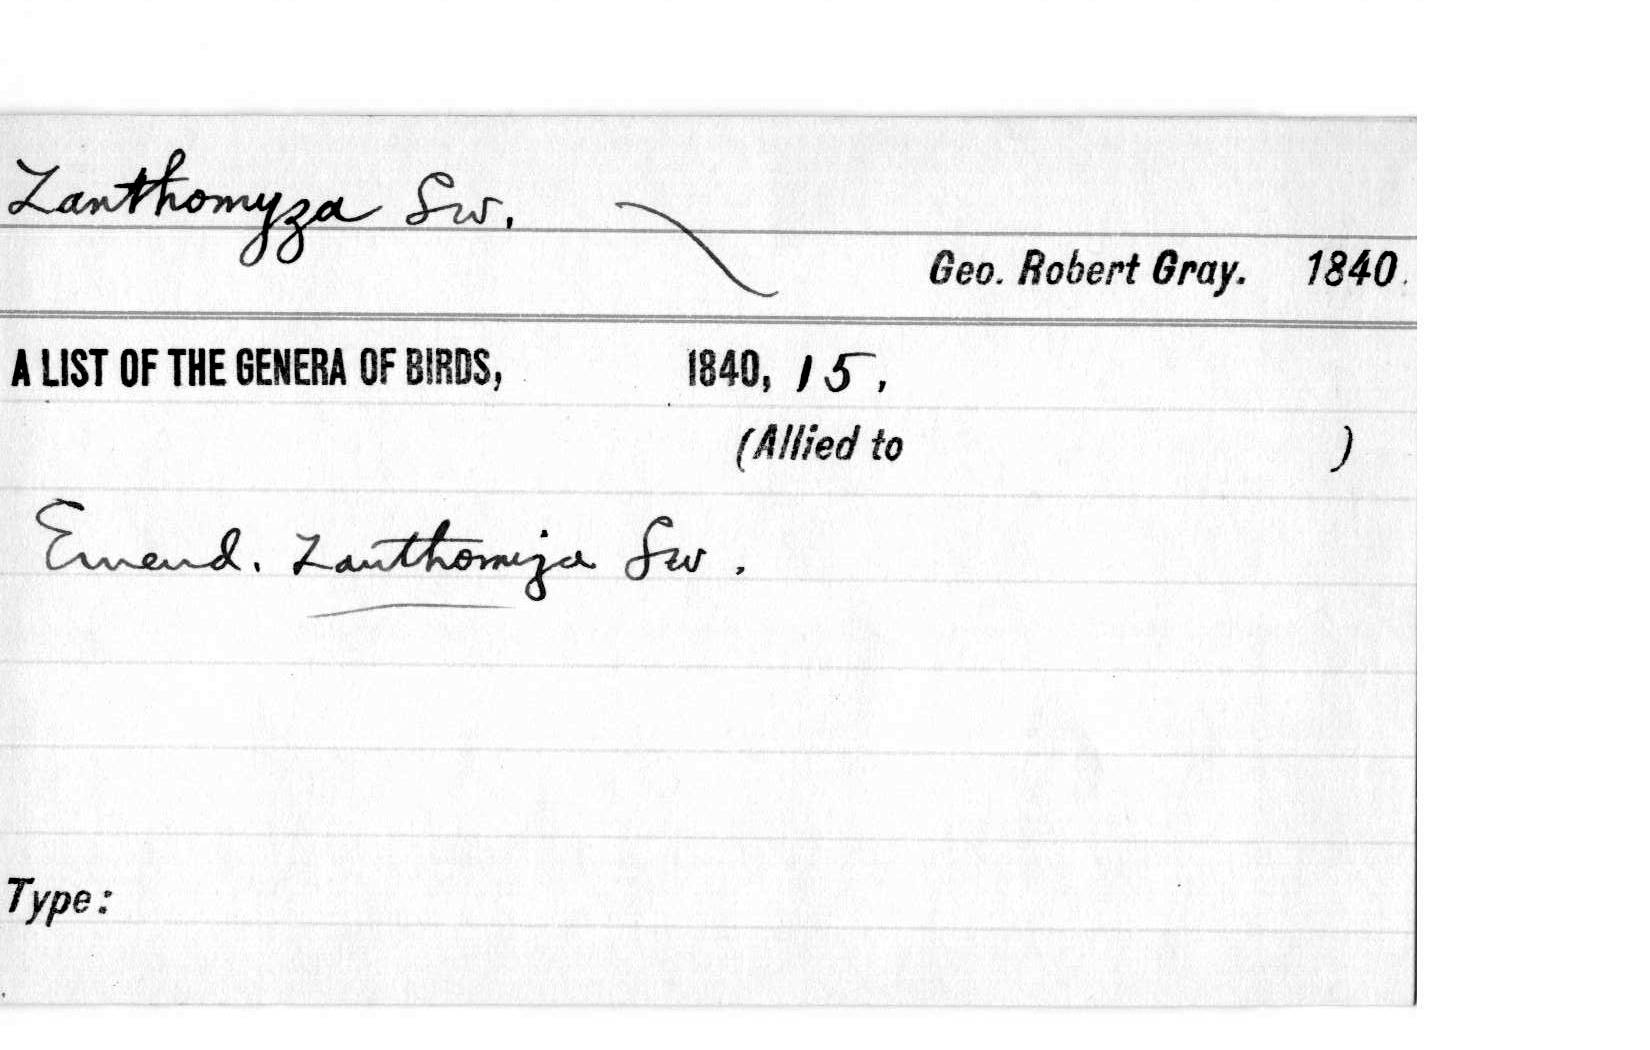 Zanthomyza Sw.
Geo. Robert Gray. 1840.
A LIST OF THE GENERA OF BIRDS, 1840, 15.
(Allied to )
Emend. Zanthomiza Sw.
Type: